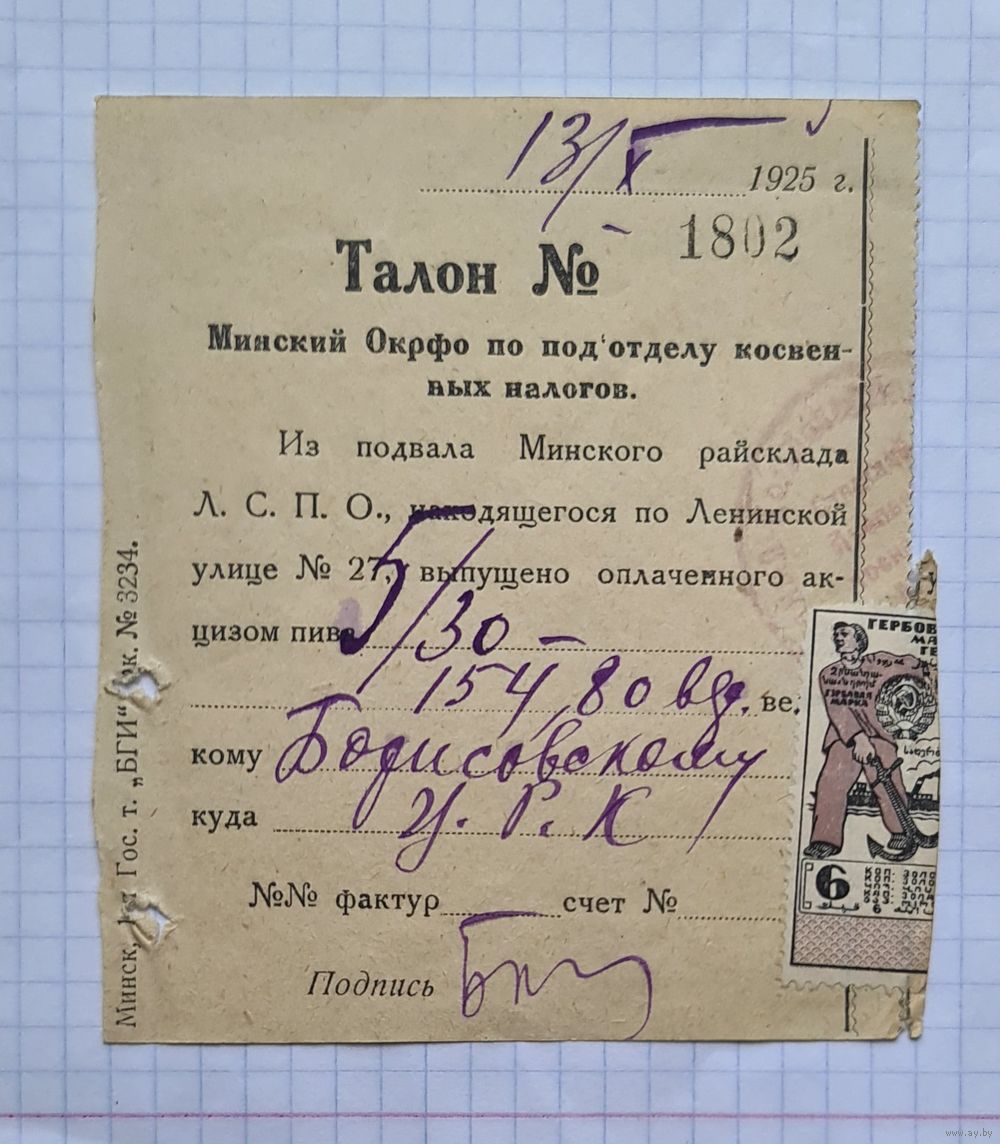 13/X 1925 г.
1802
Талон №
Минский Окрфо по под'отделу косвен-
ных налогов.
Из подвала Минского райсклада
Л. С. П. О., находящегося по Ленинской
улице № 27, выпущено оплаченного ак-
цизом пива 5/30 –
154,80 вд. ве.
кому Борисовскому
куда Ц. Р. К
№№ фактур счет №
Подпись
Минск, Гос. т. „БГИ“ № 3234.
ГЕРБОВ
МА
ГЕ
ГЕРБОВАЯ
МАРКА
6
www.ay.by